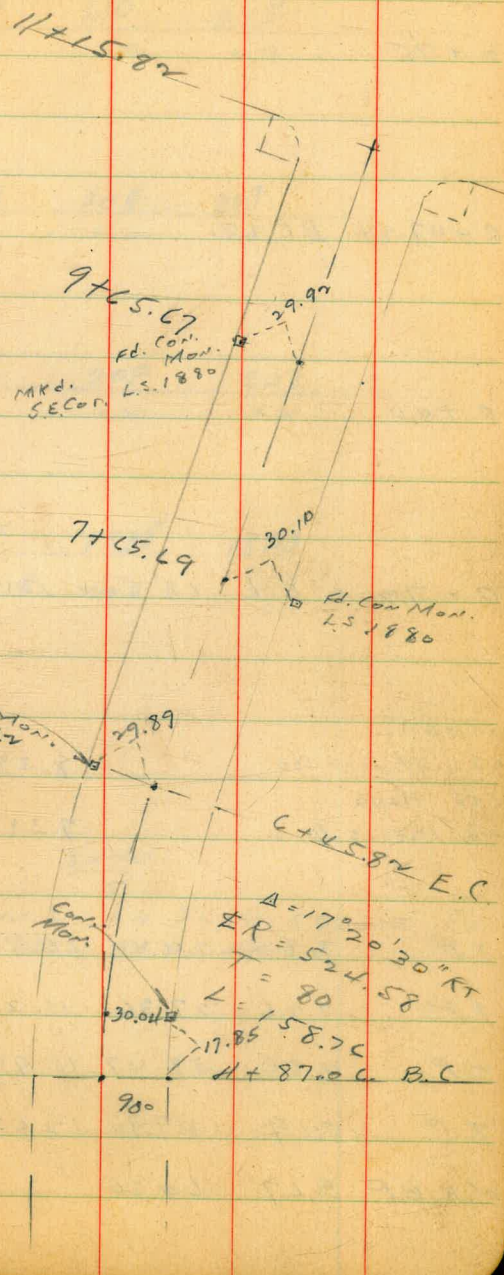 11+15.82
9+65.67
29.92
Fd. Con.
Mon.
L.S. 1880
Mkd.
S.E. Cor.
7+65.69
30.10
Fd. Con Mon.
L.S. 1880
Mon.
29.89
6+45.82 E.C.
Δ = 17° 20' 30" RT
R = 524.58
T = 80
L = 158.76
Con.
Mon.
30.04
17.85
4+87.06 B.C
90°